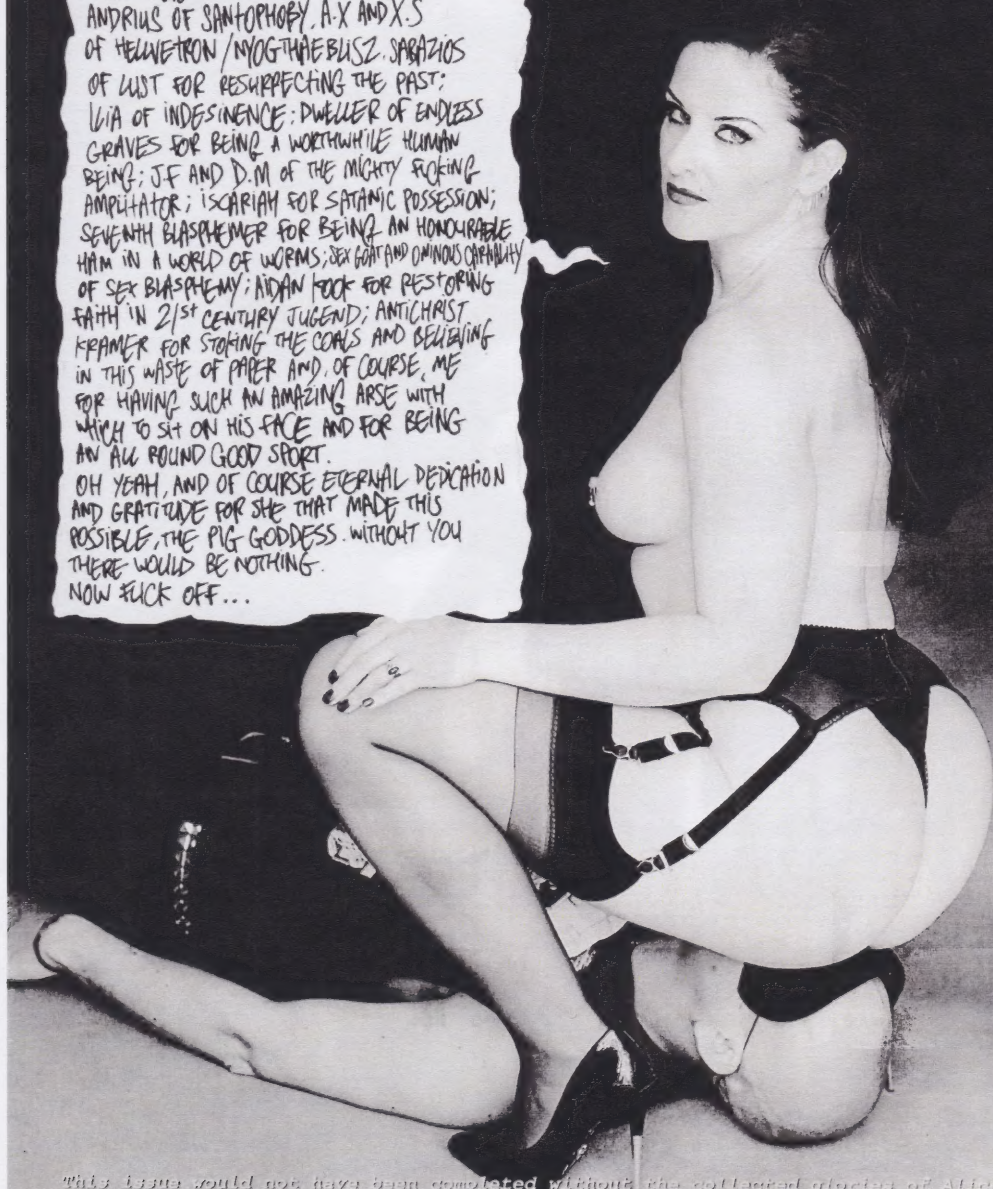 ANDRIUS OF SANTOPHOBY. A.X AND X.S
OF HELLVETRON / NYOGTHAEBLISZ. SABAZIOS
OF LUST FOR RESURRECTING THE PAST;
ILIA OF INDESINENCE; DWELLER OF ENDLESS
GRAVES FOR BEING A WORTHWHILE HUMAN
BEING; J.F AND D.M OF THE MIGHTY FUCKING
AMPUTATOR; ISCARIAH FOR SATANIC POSSESSION;
SEVENTH BLASPHEMER FOR BEING AN HONOURABLE
HAM IN A WORLD OF WORMS; SEX GOAT AND OMINOUS CARNALITY
OF SEX BLASPHEMY; AIDAN FOR RESTORING
FAITH IN 21st CENTURY JUGEND; ANTICHRIST
KRAMER FOR STOKING THE COALS AND BELIEVING
IN THIS WASTE OF PAPER AND, OF COURSE, ME
FOR HAVING SUCH AN AMAZING ARSE WITH
WHICH TO SIT ON HIS FACE AND FOR BEING
AN ALL ROUND GOOD SPORT.
OH YEAH, AND OF COURSE ETERNAL DEDICATION
AND GRATITUDE FOR SHE THAT MADE THIS
POSSIBLE, THE PIG GODDESS. WITHOUT YOU
THERE WOULD BE NOTHING.
NOW FUCK OFF...
This issue would not have been completed without the collected glories of Alic